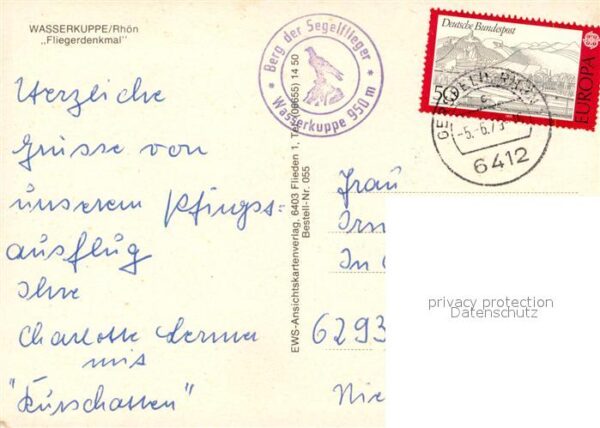 WASSERKUPPE/Rhön
„Fliegerdenkmal"
Herzliche
Grüsse von
unserem Pfingst=
ausflug
Ihre
Charlotte
mit
"Kurschatten"
* Berg der Segelflieger *
Wasserkuppe 950 m
EWS-Ansichtskartenverlag, 6403 Flieden 1, Tel. (06655) 14 50
Bestell-Nr. 055
Deutsche Bundespost
50
EUROPA
CEPT
6412
Frau
In
6293
privacy protection
Datenschutz